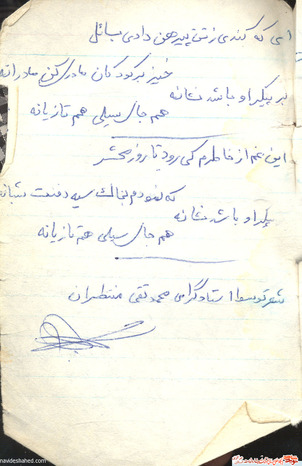 ای که کندی ز تن پیرهن دادی بسائل
خیز بر کودکان مادری کن مادرانه
بر پیکر او باشد نشانه
هم جای سیلی هم تازیانه
این غم از خاطرم کی رود تا روز محشر
که نمودم بخاکت سپه دفنت شبانه
پیکر او باشد نشانه
هم جای سیلی هم تازیانه
شعر توسط استاد گرامی محمد تقی منتظران
navideshahed.com